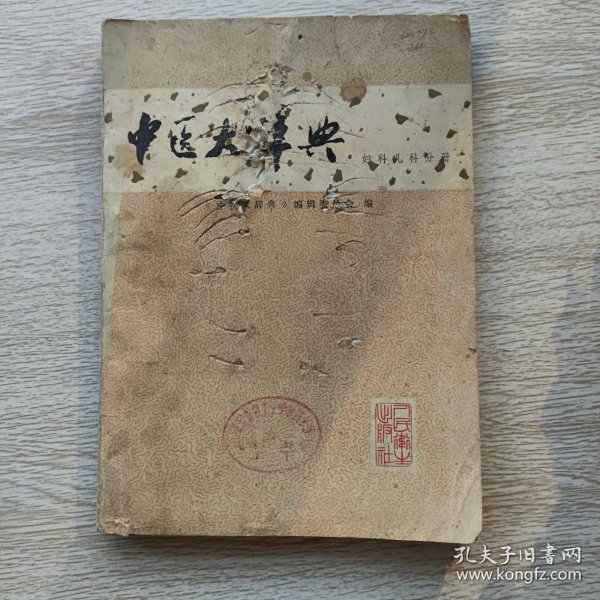 中医大辞典
妇科儿科分册
辞典》编辑委员会 编
人民卫生出版社
孔夫子旧书网
www.kongfz.com